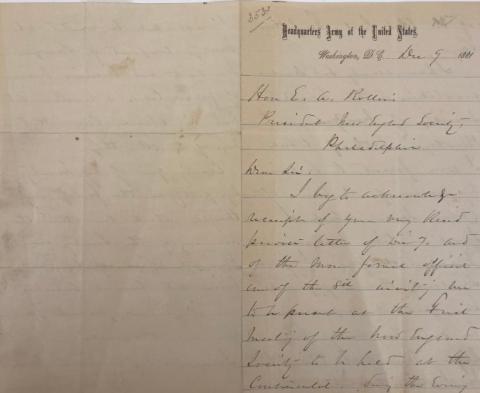 353
Headquarters Army of the United States,
Washington, D.C. Dec 9 1881
Hon E. A. Rollins
President New England Society,
Philadelphia
Dear Sir:
I beg to acknowledge
receipt of your very kind
private letter of Dec 7, and
of the more formal official
one of the 8th inviting me
to be present at the First
Meeting of the New England
Society to be held at the
Continental. the Evening